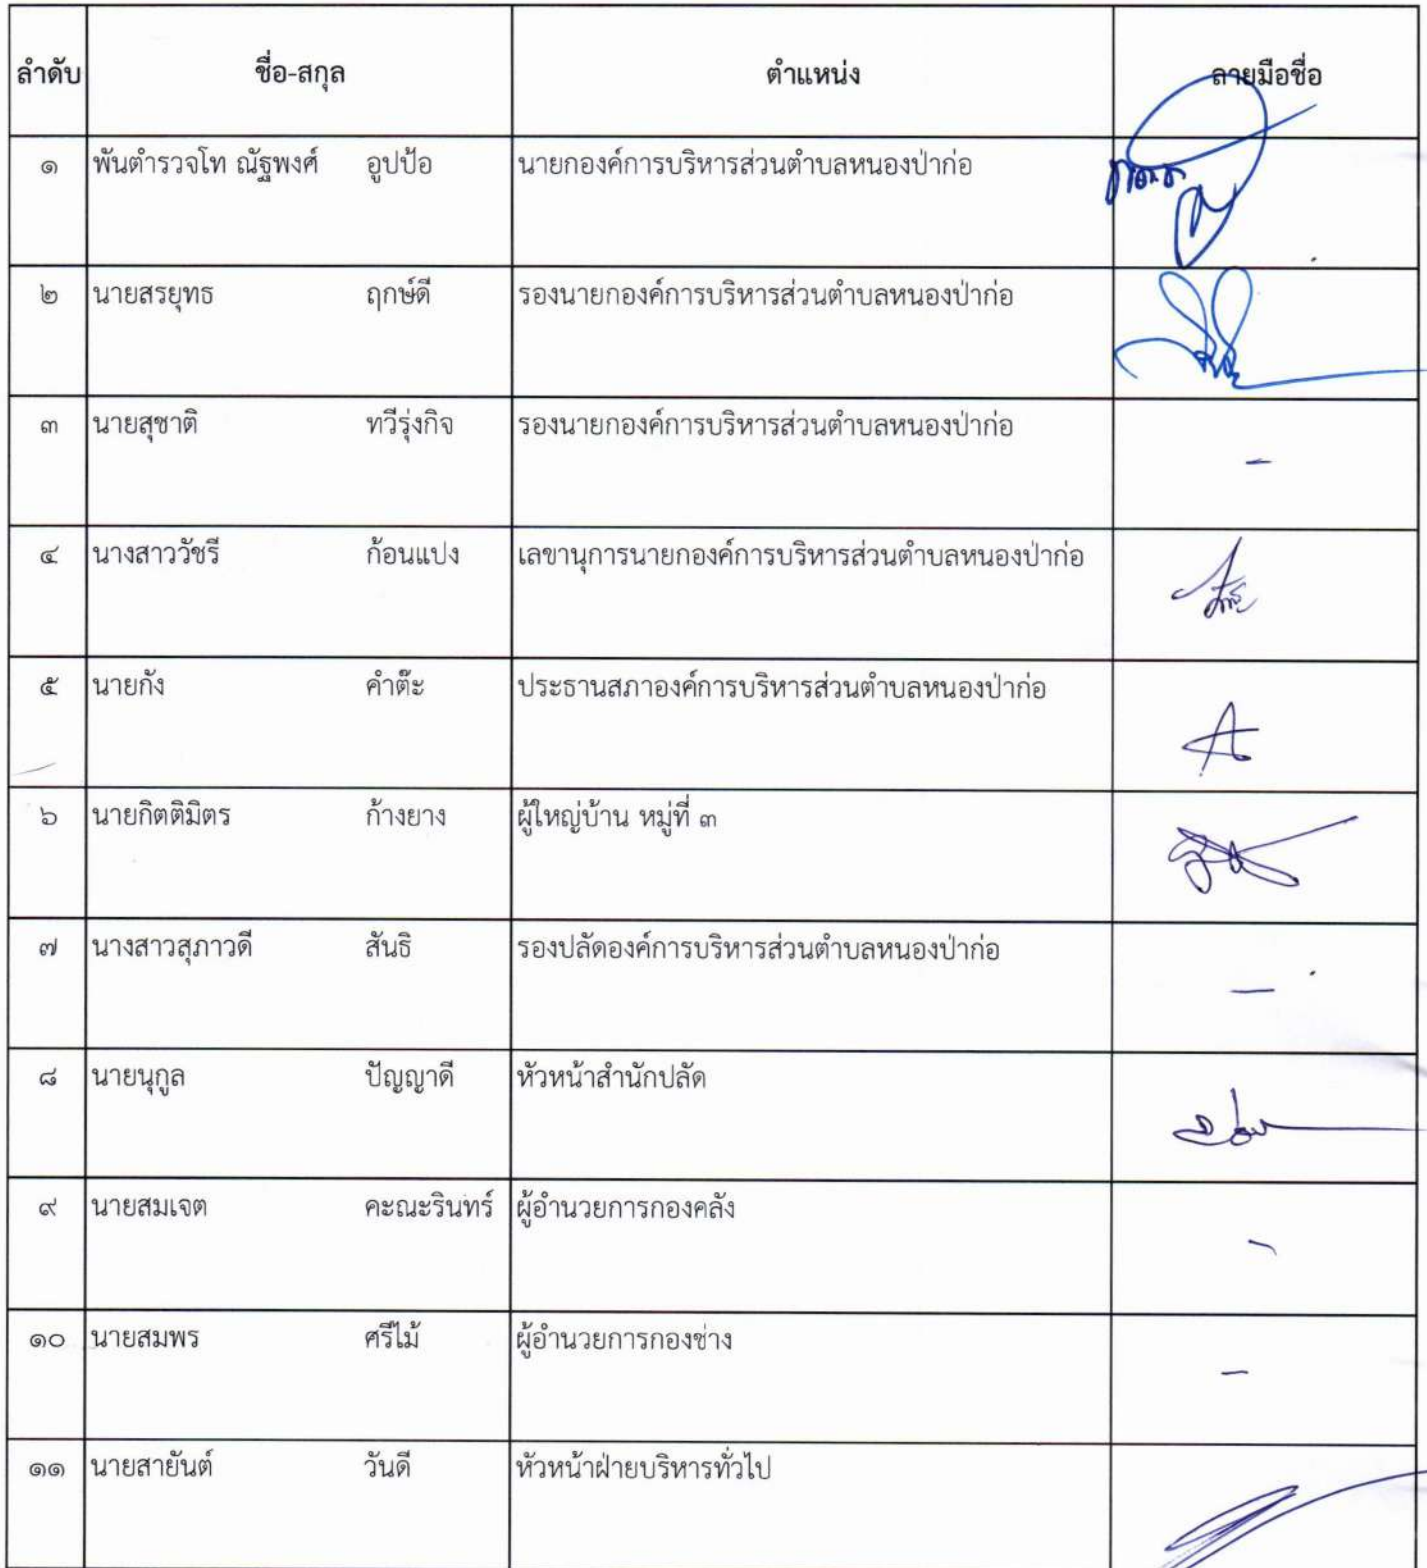 ลำดับ ชื่อ-สกุล ตำแหน่ง ลายมือชื่อ
๑ พันตำรวจโท ณัฐพงศ์ อูปป้อ นายกองค์การบริหารส่วนตำบลหนองป่าก่อ
๒ นายสรยุทธ ฤกษ์ดี รองนายกองค์การบริหารส่วนตำบลหนองป่าก่อ
๓ นายสุชาติ ทวีรุ่งกิจ รองนายกองค์การบริหารส่วนตำบลหนองป่าก่อ -
๔ นางสาววัชรี ก้อนแปง เลขานุการนายกองค์การบริหารส่วนตำบลหนองป่าก่อ
๕ นายกัง คำต๊ะ ประธานสภาองค์การบริหารส่วนตำบลหนองป่าก่อ
๖ นายกิตติมิตร ก้างยาง ผู้ใหญ่บ้าน หมู่ที่ ๓
๗ นางสาวสุภาวดี สันธิ รองปลัดองค์การบริหารส่วนตำบลหนองป่าก่อ -
๘ นายนุกูล ปัญญาดี หัวหน้าสำนักปลัด
๙ นายสมเจต คะณะรินทร์ ผู้อำนวยการกองคลัง -
๑๐ นายสมพร ศรีไม้ ผู้อำนวยการกองช่าง -
๑๑ นายสายันต์ วันดี หัวหน้าฝ่ายบริหารทั่วไป